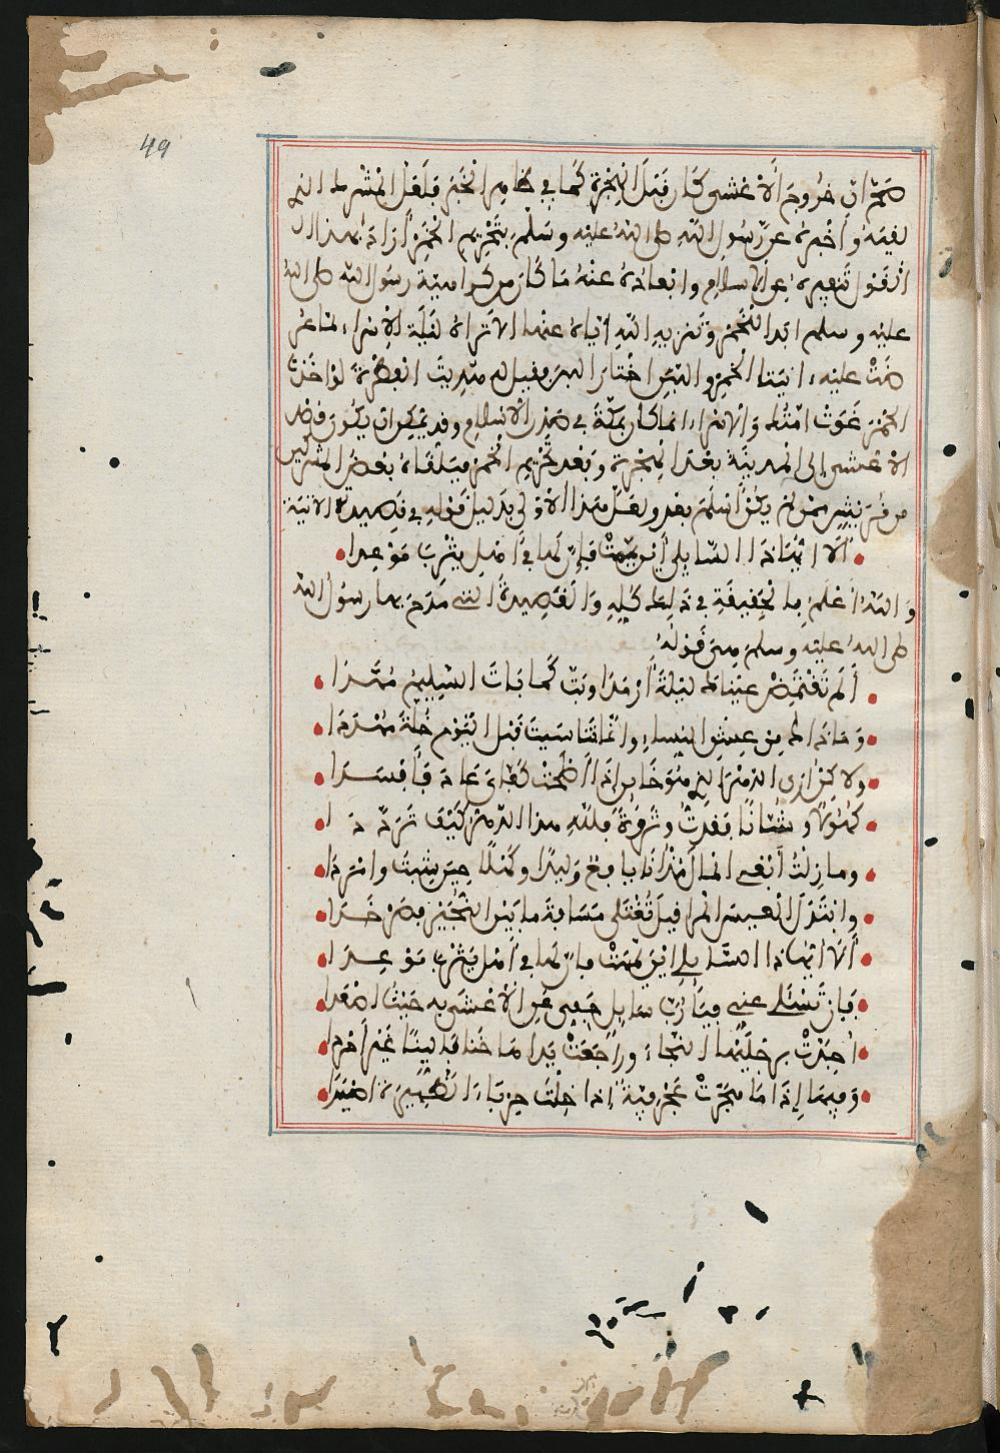 49
صح ان خروج الاعشى كان قبل الهجرة كما في ظاهر الخبر فلعل المشرك الذي
لقيه واخبره عن رسول الله صلى الله عليه وسلم بتحريم الخمر اراد بهذا
القول تنفيره عن الاسلام وابعاده عنه ما كان من كراهية رسول الله صلى الله
عليه وسلم ابدا للخمر وتنزيه الله اياه عنها الا تراه ليلة الاسراء لما عر
ضت عليه انية الخمر واللبن اختار اللبن فقيل له هديت الفطرة لو اخذت
الخمر غوت امتك والاسراء انما كان بمكة في صدر الاسلام وقد يمكن ان يكون قصد
الاعشى الى المدينة بعد الهجرة وبعد تحريم الخمر فيلقاه بعض المشركين
من قريش ممن لم يكن اسلم بعد ولعل هذا الاولى بدليل قوله في قصيدته الاتية
الا ايهذا السايلي اين يممت فان لها في اهل يثرب موعدا
والله اعلم بالحقيقة في ذلك كله والقصيدة التي مدح بها رسول الله
صلى الله عليه وسلم هي قوله
الم تغتمض عيناك ليلة ارمدا وبت كما بات السليم مسهدا
وما ذاك من عشق النساء وانما تناسيت قبل اليوم خلة مهددا
ولاكن ارى الدهر الذي هو خاين اذا اصلحت كفاي عاد فافسدا
كهولا وشبانا فقدت وثروة فلله هذا الدهر كيف ترددا
وما زلت ابغي المال مذ انا يافع وليدا وكهلا حين شبت وامردا
وابتذل العيس المراقيل تغتلي مسافة ما بين النجير فصرخدا
الا ايهذا السايلي اين يممت فان لها في اهل يثرب موعدا
فان تسئلي عني فيا رب سايل حفي عن الاعشى به حيث اصعدا
اجدت برجليها النجاء وراجعت يداها خنافا لينا غير احردا
وفيها اذا ما هجرت عجرفية اذا خلت حرباء الظهيرة اصيدا